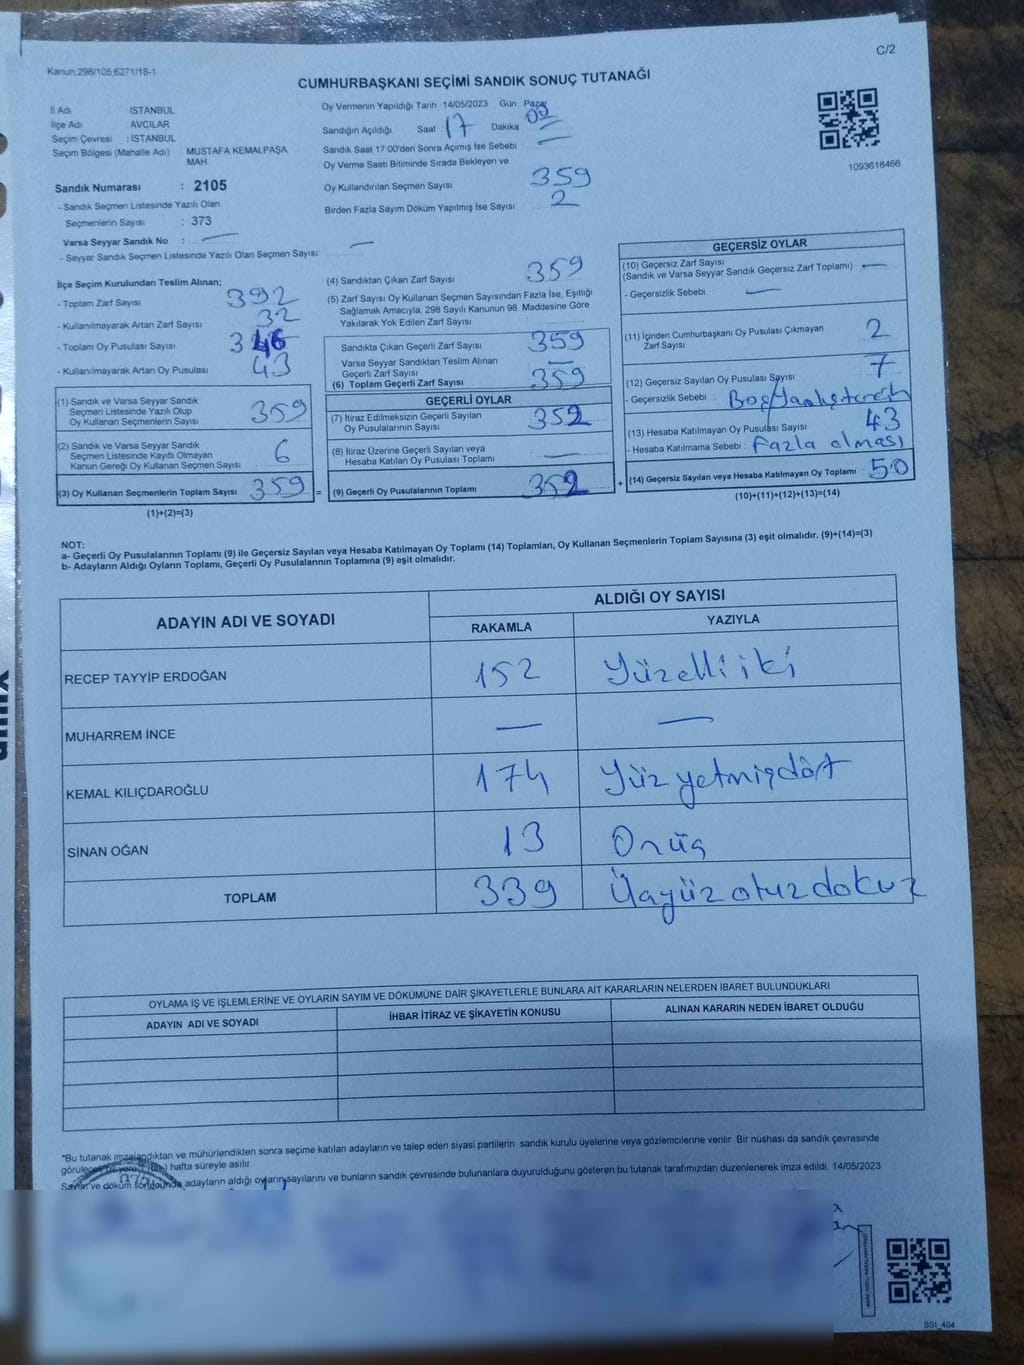 C/2
Kanun:298/105,6271/18-1
CUMHURBAŞKANI SEÇİMİ SANDIK SONUÇ TUTANAĞI
İl Adı İSTANBUL
İlçe Adı AVCILAR
Seçim Çevresi : İSTANBUL
Seçim Bölgesi (Mahalle Adı) MUSTAFA KEMALPAŞA
MAH
Sandık Numarası : 2105
- Sandık Seçmen Listesinde Yazılı Olan
Seçmenlerin Sayısı : 373
Varsa Seyyar Sandık No : —
- Seyyar Sandık Seçmen Listesinde Yazılı Olan Seçmen Sayısı: —
Oy Vermenin Yapıldığı Tarih 14/05/2023 Gün Pazar
Sandığın Açıldığı Saat 17 Dakika 00
Sandık Saat 17:00'den Sonra Açımış İse Sebebi —
Oy Verme Saati Bitiminde Sırada Bekleyen ve
Oy Kullandırılan Seçmen Sayısı 359
Birden Fazla Sayım Döküm Yapılmış İse Sayısı 2
1093618466
İlçe Seçim Kurulundan Teslim Alınan;
- Toplam Zarf Sayısı 392
- Kullanılmayarak Artan Zarf Sayısı 32
- Toplam Oy Pusulası Sayısı 346
- Kullanılmayarak Artan Oy Pusulası 43
(1) Sandık ve Varsa Seyyar Sandık
Seçmen Listesinde Yazılı Olup
Oy Kullanan Seçmenlerin Sayısı 359
(2) Sandık ve Varsa Seyyar Sandık
Seçmen Listesinde Kayıtlı Olmayan
Kanun Gereği Oy Kullanan Seçmen Sayısı 6
(3) Oy Kullanan Seçmenlerin Toplam Sayısı 359 =
(1)+(2)=(3)
(4) Sandıktan Çıkan Zarf Sayısı 359
(5) Zarf Sayısı Oy Kullanan Seçmen Sayısından Fazla İse, Eşitliği
Sağlamak Amacıyla, 298 Sayılı Kanunun 98. Maddesine Göre
Yakılarak Yok Edilen Zarf Sayısı
Sandıkta Çıkan Geçerli Zarf Sayısı 359
Varsa Seyyar Sandıktan Teslim Alınan
Geçerli Zarf Sayısı —
(6) Toplam Geçerli Zarf Sayısı 359
GEÇERLİ OYLAR
(7) İtiraz Edilmeksizin Geçerli Sayılan
Oy Pusulalarının Sayısı 352
(8) İtiraz Üzerine Geçerli Sayılan veya
Hesaba Katılan Oy Pusulası Toplamı —
(9) Geçerli Oy Pusulalarının Toplamı 352 +
GEÇERSİZ OYLAR
(10) Geçersiz Zarf Sayısı
(Sandık ve Varsa Seyyar Sandık Geçersiz Zarf Toplamı) —
- Geçersizlik Sebebi —
(11) İçinden Cumhurbaşkanı Oy Pusulası Çıkmayan
Zarf Sayısı 2
(12) Geçersiz Sayılan Oy Pusulası Sayısı 7
- Geçersizlik Sebebi :
(13) Hesaba Katılmayan Oy Pusulası Sayısı 43
- Hesaba Katılmama Sebebi : Fazla olması
(14) Geçersiz Sayılan veya Hesaba Katılmayan Oy Toplamı 50
(10)+(11)+(12)+(13)=(14)
NOT:
a- Geçerli Oy Pusulalarının Toplamı (9) ile Geçersiz Sayılan veya Hesaba Katılmayan Oy Toplamı (14) Toplamları, Oy Kullanan Seçmenlerin Toplam Sayısına (3) eşit olmalıdır. (9)+(14)=(3)
b- Adayların Aldığı Oyların Toplamı, Geçerli Oy Pusulalarının Toplamına (9) eşit olmalıdır.
ADAYIN ADI VE SOYADI ALDIĞI OY SAYISI
RAKAMLA YAZIYLA
RECEP TAYYİP ERDOĞAN 152 Yüzelli iki
MUHARREM İNCE — —
KEMAL KILIÇDAROĞLU 174 Yüz yetmişdört
SİNAN OĞAN 13 Onüç
TOPLAM 339 Üçyüz otuz dokuz
OYLAMA İŞ VE İŞLEMLERİNE VE OYLARIN SAYIM VE DÖKÜMÜNE DAİR ŞİKAYETLERLE BUNLARA AİT KARARLARIN NELERDEN İBARET BULUNDUKLARI
ADAYIN ADI VE SOYADI İHBAR İTİRAZ VE ŞİKAYETİN KONUSU ALINAN KARARIN NEDEN İBARET OLDUĞU
*Bu tutanak imzalandıktan ve mühürlendikten sonra seçime katılan adayların ve talep eden siyasi partilerin sandık kurulu üyelerine veya gözlemcilerine verilir. Bir nüshası da sandık çevresinde
hafta süreyle asılır.
Sayım ve döküm sonucunda adayların aldığı oyların sayılarını ve bunların sandık çevresinde bulunanlara duyurulduğunu gösteren bu tutanak tarafımızdan düzenlenerek imza edildi. 14/05/2023
SSI_404